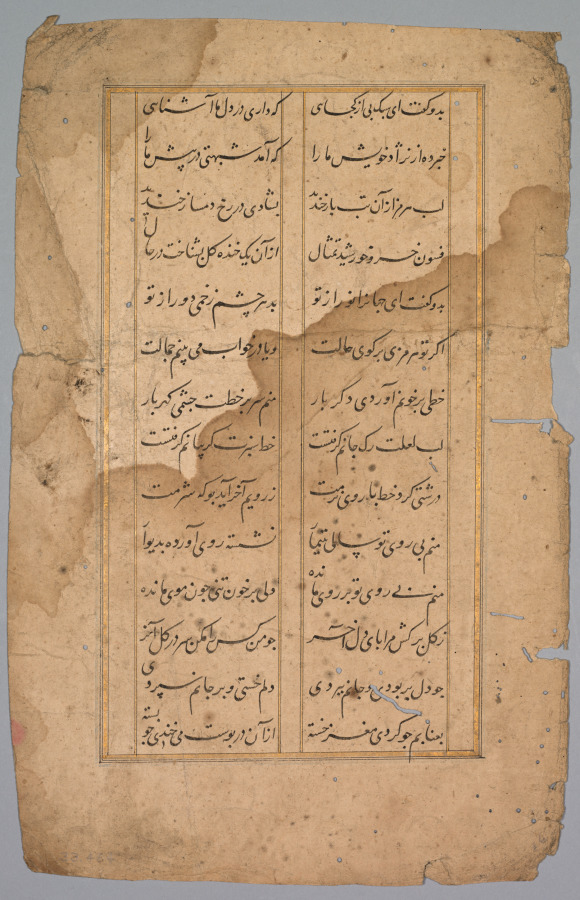 بدو گفت ای سبک پی از کجایی که داری در دل ما آشنایی
خبر ده از نژاد خویش ما را که آمد شبهتی در پیش ما را
لب هرمز از آن تب باز خندید بشادی در رخ دمساز خندید
فسون خسرو خورشید تمثال از آن یک خنده گل بشناخت در حال
بدو گفت ای جانرا نور از تو بد هر چشم زخمی دور از تو
اگر تو هرمزی برگوی حالت و یا در خواب می بینم جمالت
خطی بر خونم آوردی دگر بار منم سر بر خطت چشمی گهربار
لب لعلت رگ جانم گرفتست خط سبزت گریبانم گرفتست
درشتی کرد خط با روی نرمت ز رویم آخر آید بو که شرمت
منم بی روی تو نشسته روی آورده بدیوار
منم بی روی تو بر روی مانده دلی پر خون تنی چون موی مانده
ز گل برکش مرا پای دل آخر چو من کس را مکن سر در گل آخر
چو دل بربودی و جانم ببردی دلم خستی و بر جانم سپردی
بعنابم چو کردی مغز خسته از آن در پوست می خندی چو پسته